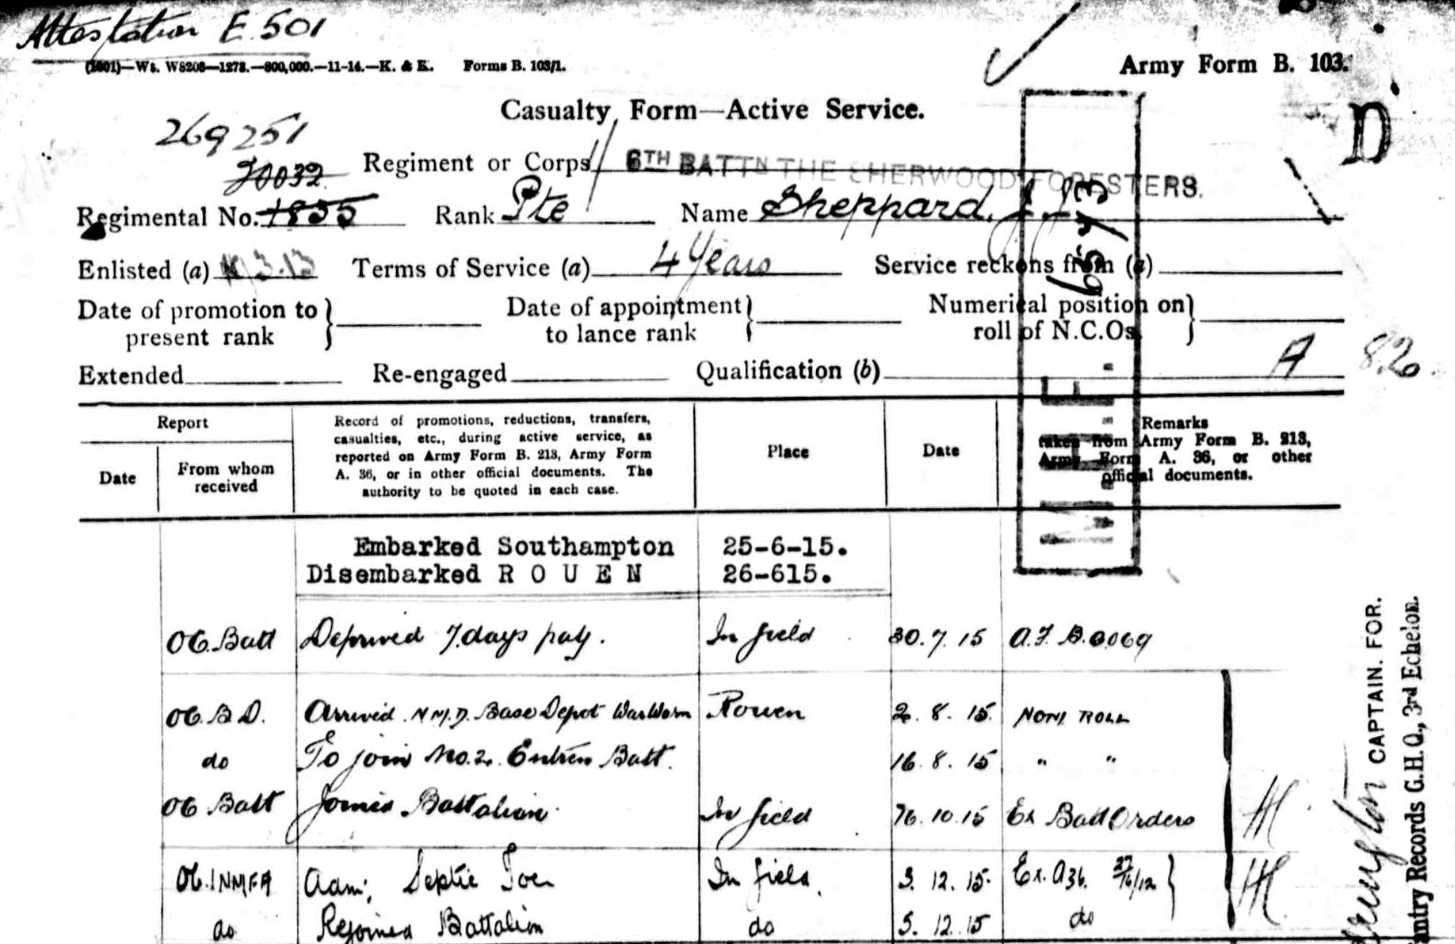 Attestation E.501
(1601)—Wt. W8208—1278.—800,000.—11-14.—K. & K. Forms B. 103/1.
Army Form B. 103.
Casualty Form—Active Service.
D
269251
Regiment or Corps 6TH BATTN THE SHERWOOD FORESTERS.
20032
Regimental No. 1835 Rank Pte Name Sheppard, J.
Enlisted (a) 3.13 Terms of Service (a) 4 Years Service reckons from (a)
Date of promotion to present rank
Date of appointment to lance rank
Numerical position on roll of N.C.Os.
Extended Re-engaged Qualification (b) A 8.26
6573
Report
Date
From whom received
Record of promotions, reductions, transfers,
casualties, etc., during active service, as
reported on Army Form B. 213, Army Form
A. 36, or in other official documents. The
authority to be quoted in each case.
Place
Date
Remarks
taken from Army Form B. 213,
Army Form A. 36, or other
official documents.
Embarked Southampton 25-6-15.
Disembarked R O U E N 26-615.
OC. Batt Deprived 7 days pay. In field 30.7.15 A.F. B.
OC. B.D. Arrived N.M.D. Base Depot Rouen 2.8.15 NOM. ROLL
do To join No. 2. Entren Batt. 16.8.15 " "
OC Batt Joined Battalion In field 10.15 Ex Batt Orders
OC. 1NMFA Adm: Septic Toe In field. 3.12.15 Ex. A36.
do Rejoined Battalion do 5.12.15 do
CAPTAIN. FOR.
antry Records G.H.Q., 3rd Echelon.